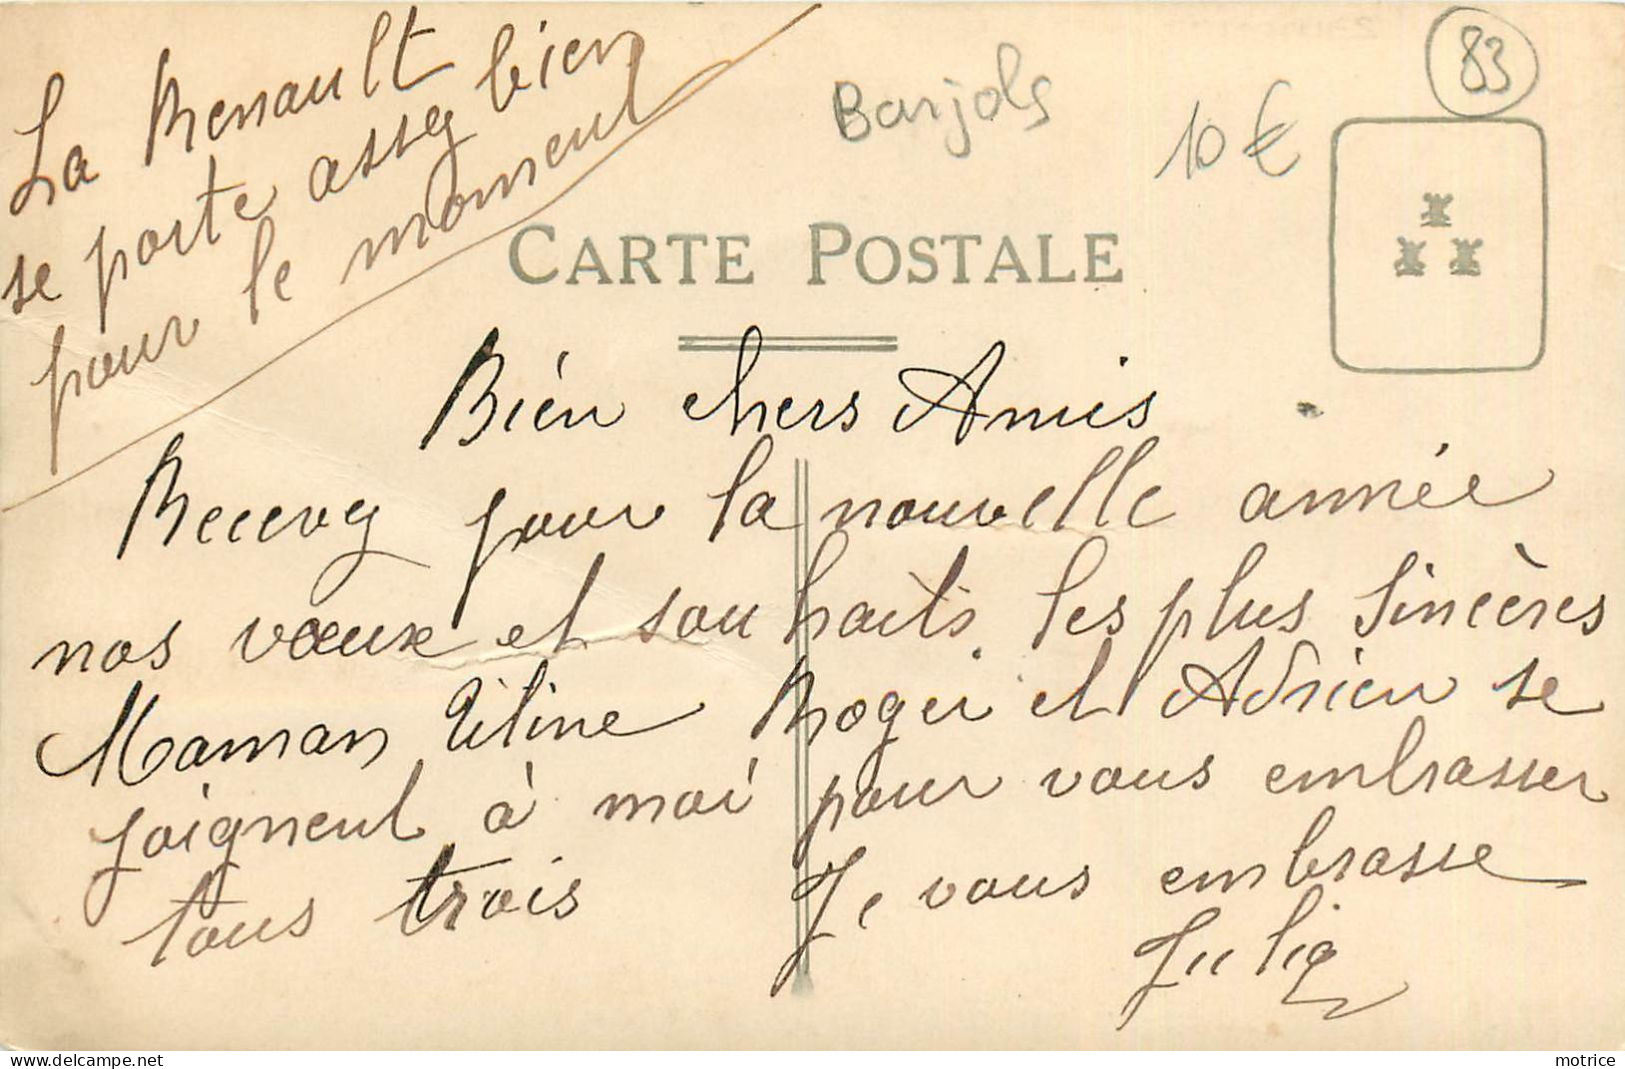 La Renault
se porte assez bien
pour le moment
Barjols
10 €
83
CARTE POSTALE
Bien chers Amis
Recevez pour la nouvelle année
nos vœux et souhaits les plus sincères
Maman Titine Roger et Adrien se
joignent à moi pour vous embrasser
tous trois Je vous embrasse
Julia
delcampe.net
matrice